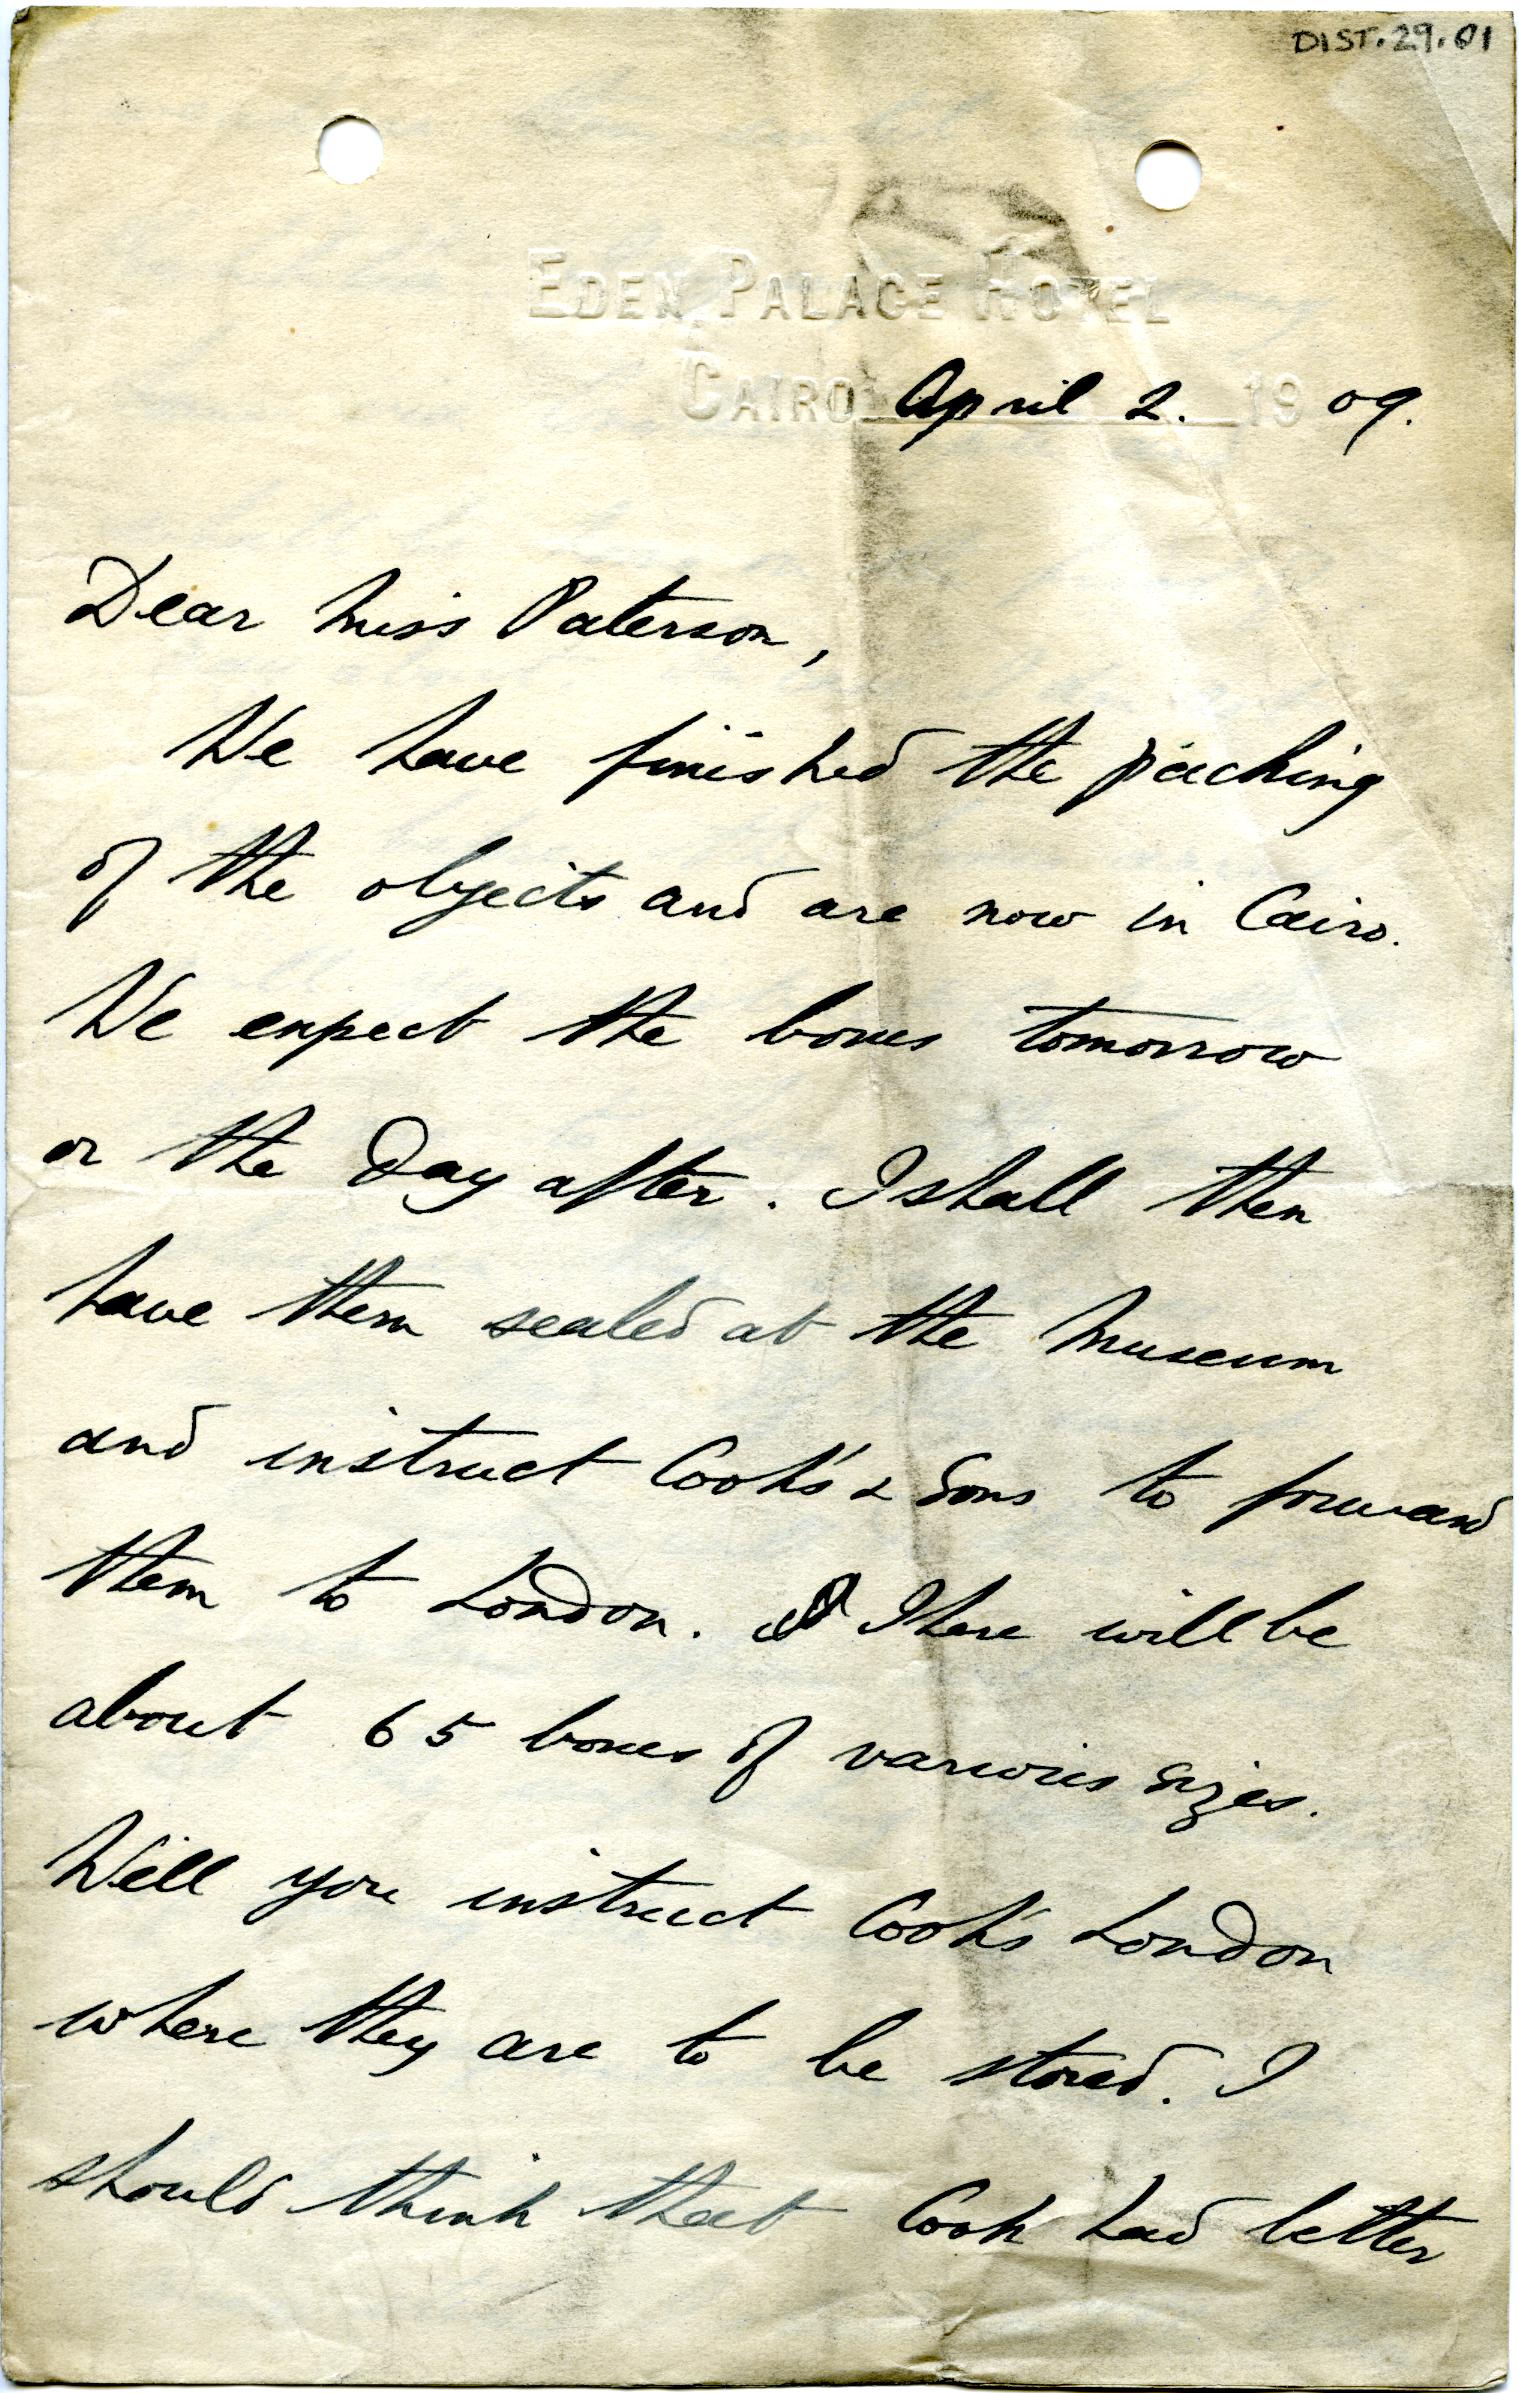 DIST.29.01
EDEN PALACE HOTEL
CAIRO April 2. 1909.
Dear Miss Paterson,
We have finished the packing
of the objects and are now in Cairo.
We expect the boxes tomorrow
or the day after. I shall then
have them sealed at the Museum
and instruct Cook's & Sons to forward
them to London. There will be
about 65 boxes of various sizes.
Will you instruct Cook's London
where they are to be stored. I
should think that Cook had better